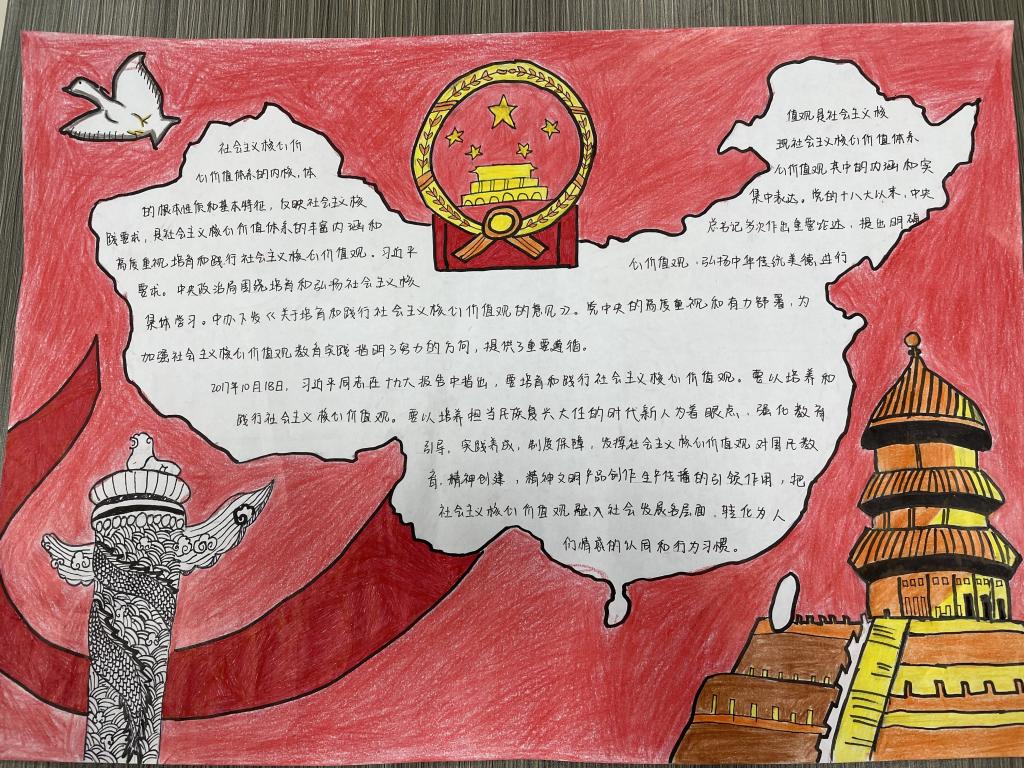 社会主义核心价 值观是社会主义核
心价值体系的内核,体 现社会主义核心价值体系
的根本性质和基本特征,反映社会主义核 心价值观其中的内涵和实
践要求,是社会主义核心价值体系的丰富内涵和 集中表达。党的十八大以来,中央
高度重视培育和践行社会主义核心价值观。习近平 总书记多次作出重要论述,提出明确
要求。中央政治局围绕培育和弘扬社会主义核 心价值观,弘扬中华传统美德进行
集体学习。中办下发《关于培育和践行社会主义核心价值观的意见》。党中央的高度重视和有力部署,为
加强社会主义核心价值观教育实践指明了努力的方向,提供了重要遵循。
2017年10月18日,习近平同志在十九大报告中指出,要培育和践行社会主义核心价值观。要以培养和
践行社会主义核心价值观。要以培养担当民族复兴大任的时代新人为着眼点,强化教育
引导,实践养成,制度保障,发挥社会主义核心价值观对国民教
育,精神创建,精神文明产品创作生产传播的引领作用,把
社会主义核心价值观融入社会发展各层面,转化为人
们情感的认同和行为习惯。